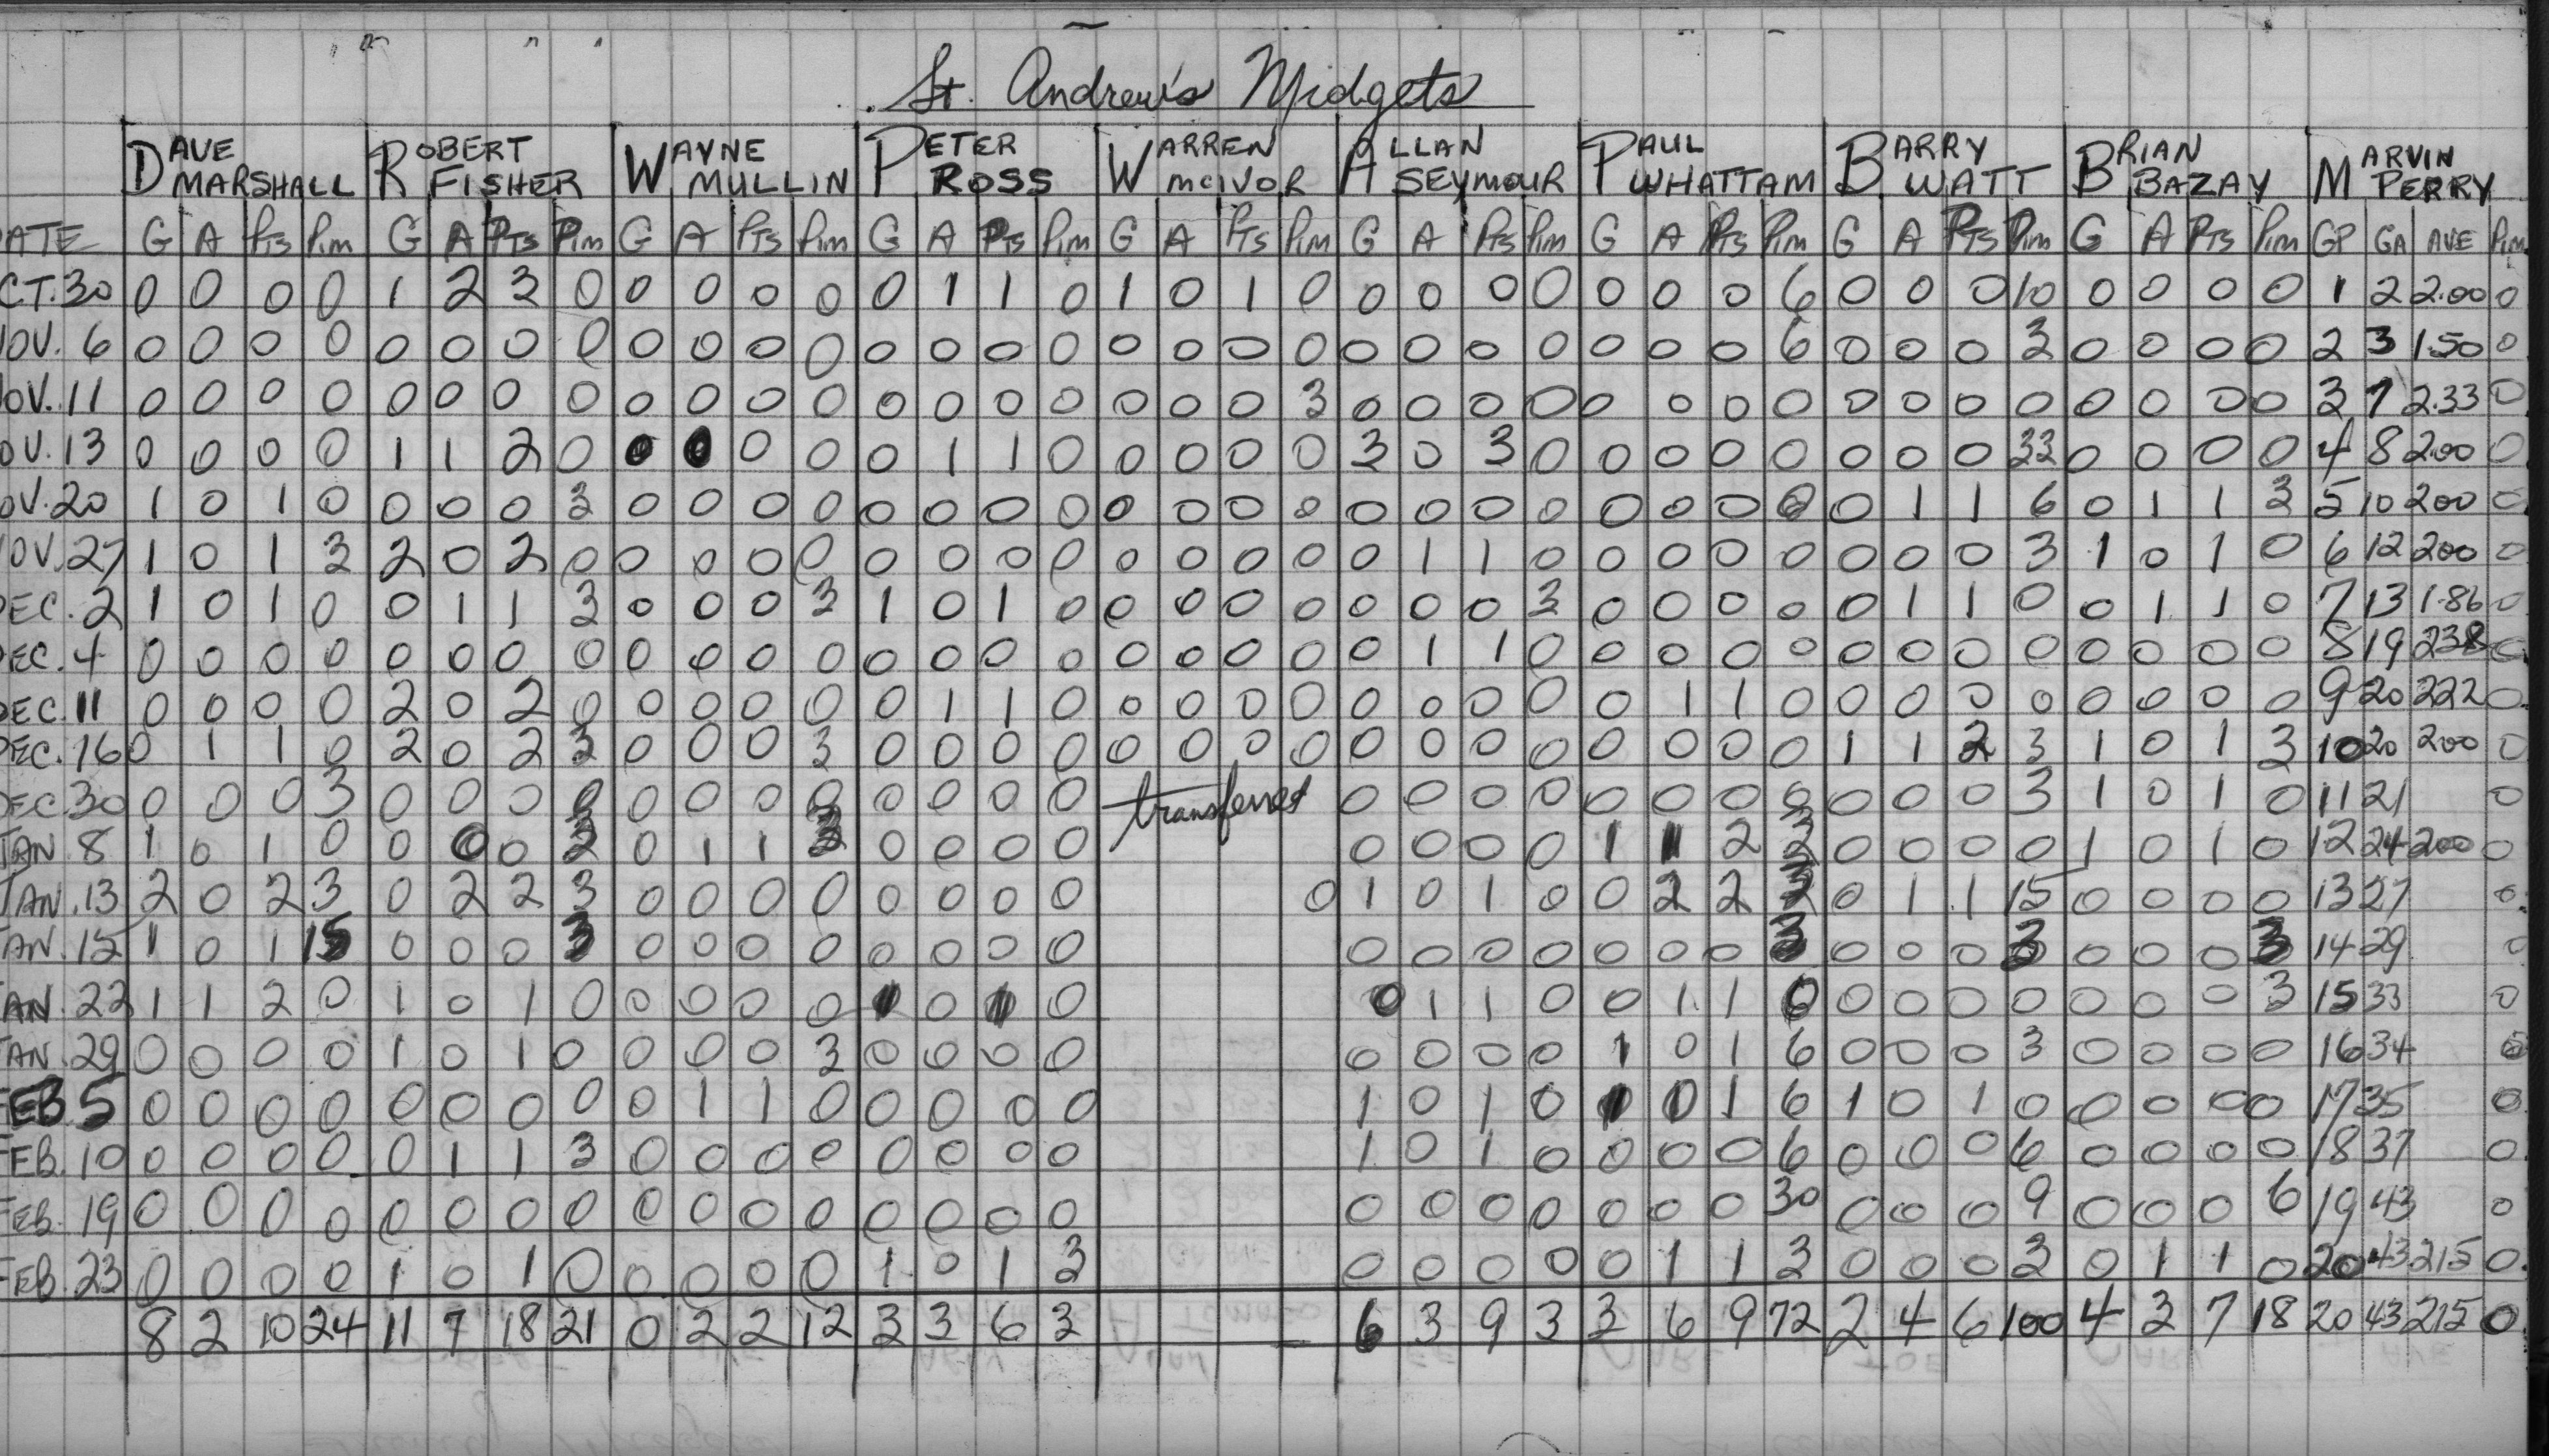 St. Andrew's Midgets
DAVE MARSHALL ROBERT FISHER WAYNE MULLIN PETER ROSS WARREN McIVOR ALLAN SEYMOUR PAUL WHATTAM BARRY WATT BRIAN BAZAY MARVIN PERRY
ATE G A PTS Pim G A PTS Pim G A PTS Pim G A PTS Pim G A PTS Pim G A PTS Pim G A PTS Pim G A PTS Pim G A PTS Pim GP GA AVE Pim
CT. 30 0 0 0 0 1 2 3 0 0 0 0 0 0 1 1 0 1 0 1 0 0 0 0 0 0 0 0 6 0 0 0 10 0 0 0 0 1 2 2.00 0
OV. 6 0 0 0 0 0 0 0 0 0 0 0 0 0 0 0 0 0 0 0 0 0 0 0 0 0 0 0 6 0 0 0 3 0 0 0 0 2 3 1.50 0
OV. 11 0 0 0 0 0 0 0 0 0 0 0 0 0 0 0 0 0 0 0 3 0 0 0 0 0 0 0 0 0 0 0 0 0 0 0 0 3 7 2.33 0
OV. 13 0 0 0 0 1 1 2 0 0 0 0 0 0 1 1 0 0 0 0 0 3 0 3 0 0 0 0 0 0 0 0 33 0 0 0 0 4 8 2.00 0
OV. 20 1 0 1 0 0 0 0 3 0 0 0 0 0 0 0 0 0 0 0 0 0 0 0 0 0 0 0 0 0 1 1 6 0 1 1 3 5 10 200 0
OV. 27 1 0 1 3 2 0 2 0 0 0 0 0 0 0 0 0 0 0 0 0 0 1 1 0 0 0 0 0 0 0 0 3 1 0 1 0 6 12 200 0
EC. 2 1 0 1 0 0 1 1 3 0 0 0 3 1 0 1 0 0 0 0 0 0 0 0 3 0 0 0 0 0 1 1 0 0 1 1 0 7 13 1.86 0
EC. 4 0 0 0 0 0 0 0 0 0 0 0 0 0 0 0 0 0 0 0 0 0 1 1 0 0 0 0 0 0 0 0 0 0 0 0 0 8 19 238 0
EC. 11 0 0 0 0 2 0 2 0 0 0 0 0 0 1 1 0 0 0 0 0 0 0 0 0 0 1 1 0 0 0 0 0 0 0 0 0 9 20 222 0
EC. 16 0 1 1 0 2 0 2 3 0 0 0 3 0 0 0 0 0 0 0 0 0 0 0 0 0 0 0 0 1 1 2 3 1 0 1 3 10 20 200 0
EC. 30 0 0 0 3 0 0 0 0 0 0 0 0 0 0 0 0 transferred 0 0 0 0 0 0 0 0 0 0 0 3 1 0 1 0 11 21 0
AN. 8 1 0 1 0 0 0 0 3 0 1 1 3 0 0 0 0 0 0 0 0 1 1 2 3 0 0 0 0 1 0 1 0 12 24 200 0
JAN. 13 2 0 2 3 0 2 2 3 0 0 0 0 0 0 0 0 0 1 0 1 0 0 2 2 3 0 1 1 15 0 0 0 0 13 27 0
AN. 15 1 0 1 15 0 0 0 3 0 0 0 0 0 0 0 0 0 0 0 0 0 0 0 3 0 0 0 3 0 0 0 3 14 29 0
AN. 22 1 1 2 0 1 0 1 0 0 0 0 0 1 0 1 0 0 1 1 0 0 1 1 0 0 0 0 0 0 0 0 3 15 33 0
AN. 29 0 0 0 0 1 0 1 0 0 0 0 3 0 0 0 0 0 0 0 0 1 0 1 6 0 0 0 3 0 0 0 0 16 34 0
EB 5 0 0 0 0 0 0 0 0 0 1 1 0 0 0 0 0 1 0 1 0 1 0 1 6 1 0 1 0 0 0 0 0 17 35 0
FEB. 10 0 0 0 0 0 1 1 3 0 0 0 0 0 0 0 0 1 0 1 0 0 0 0 6 0 0 0 6 0 0 0 0 18 37 0
FEB. 19 0 0 0 0 0 0 0 0 0 0 0 0 0 0 0 0 0 0 0 0 0 0 0 30 0 0 0 9 0 0 0 6 19 43 0
FEB. 23 0 0 0 0 1 0 1 0 0 0 0 0 1 0 1 3 0 0 0 0 0 1 1 3 0 0 0 3 0 1 1 0 20 43 215 0
8 2 10 24 11 7 18 21 0 2 2 12 3 3 6 3 6 3 9 3 3 6 9 72 2 4 6 100 4 3 7 18 20 43 215 0